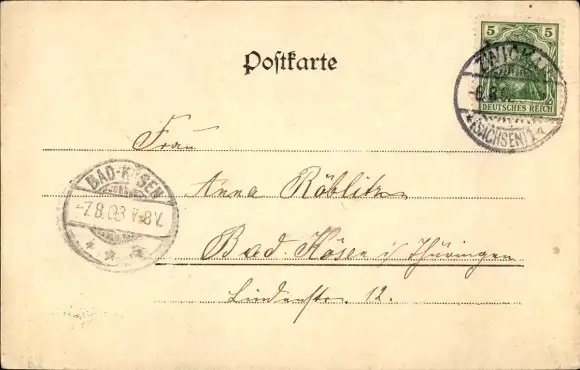 5 5
DEUTSCHES REICH
ZWICKAU
6.8.
*(SACHSEN)1.d
Postkarte
Frau
Anna Röblitz
Bad Kösen i/Thüringen
Lindenstr. 12.
BAD-KÖSEN
-7.8.03.7-8V.
* * *